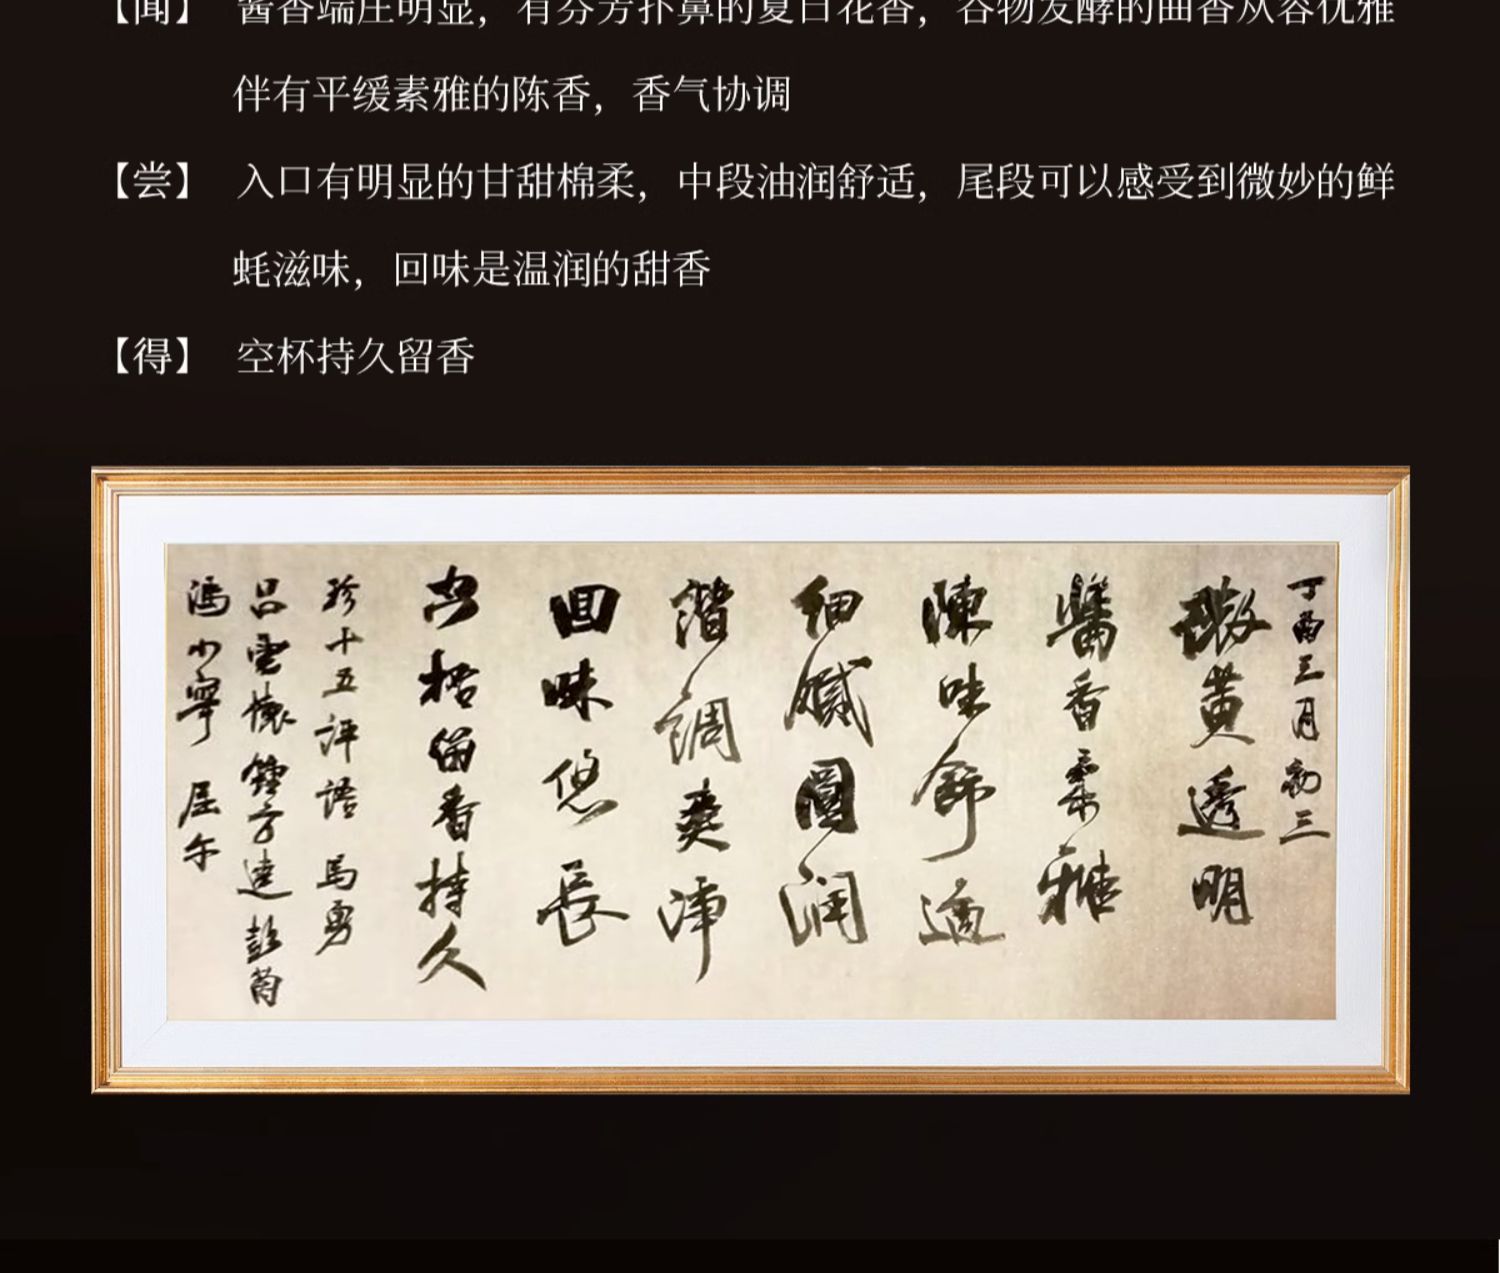 【闻】 酱香端庄明显，有芬芳扑鼻的夏日花香，谷物发酵的曲香从容优雅
伴有平缓素雅的陈香，香气协调
【尝】 入口有明显的甘甜棉柔，中段油润舒适，尾段可以感受到微妙的鲜
蚝滋味，回味是温润的甜香
【得】 空杯持久留香
丁酉三月初三
微黄透明
醬香柔雅
陳味舒適
细膩圓润
諧調爽淨
回味悠長
空杯留香持久
珍十五评语 馬勇
呂雲懷 鍾方達 彭茵
馮小寧 屈午